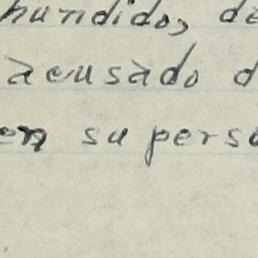 hundido, de
àcusàdo d
en su perso